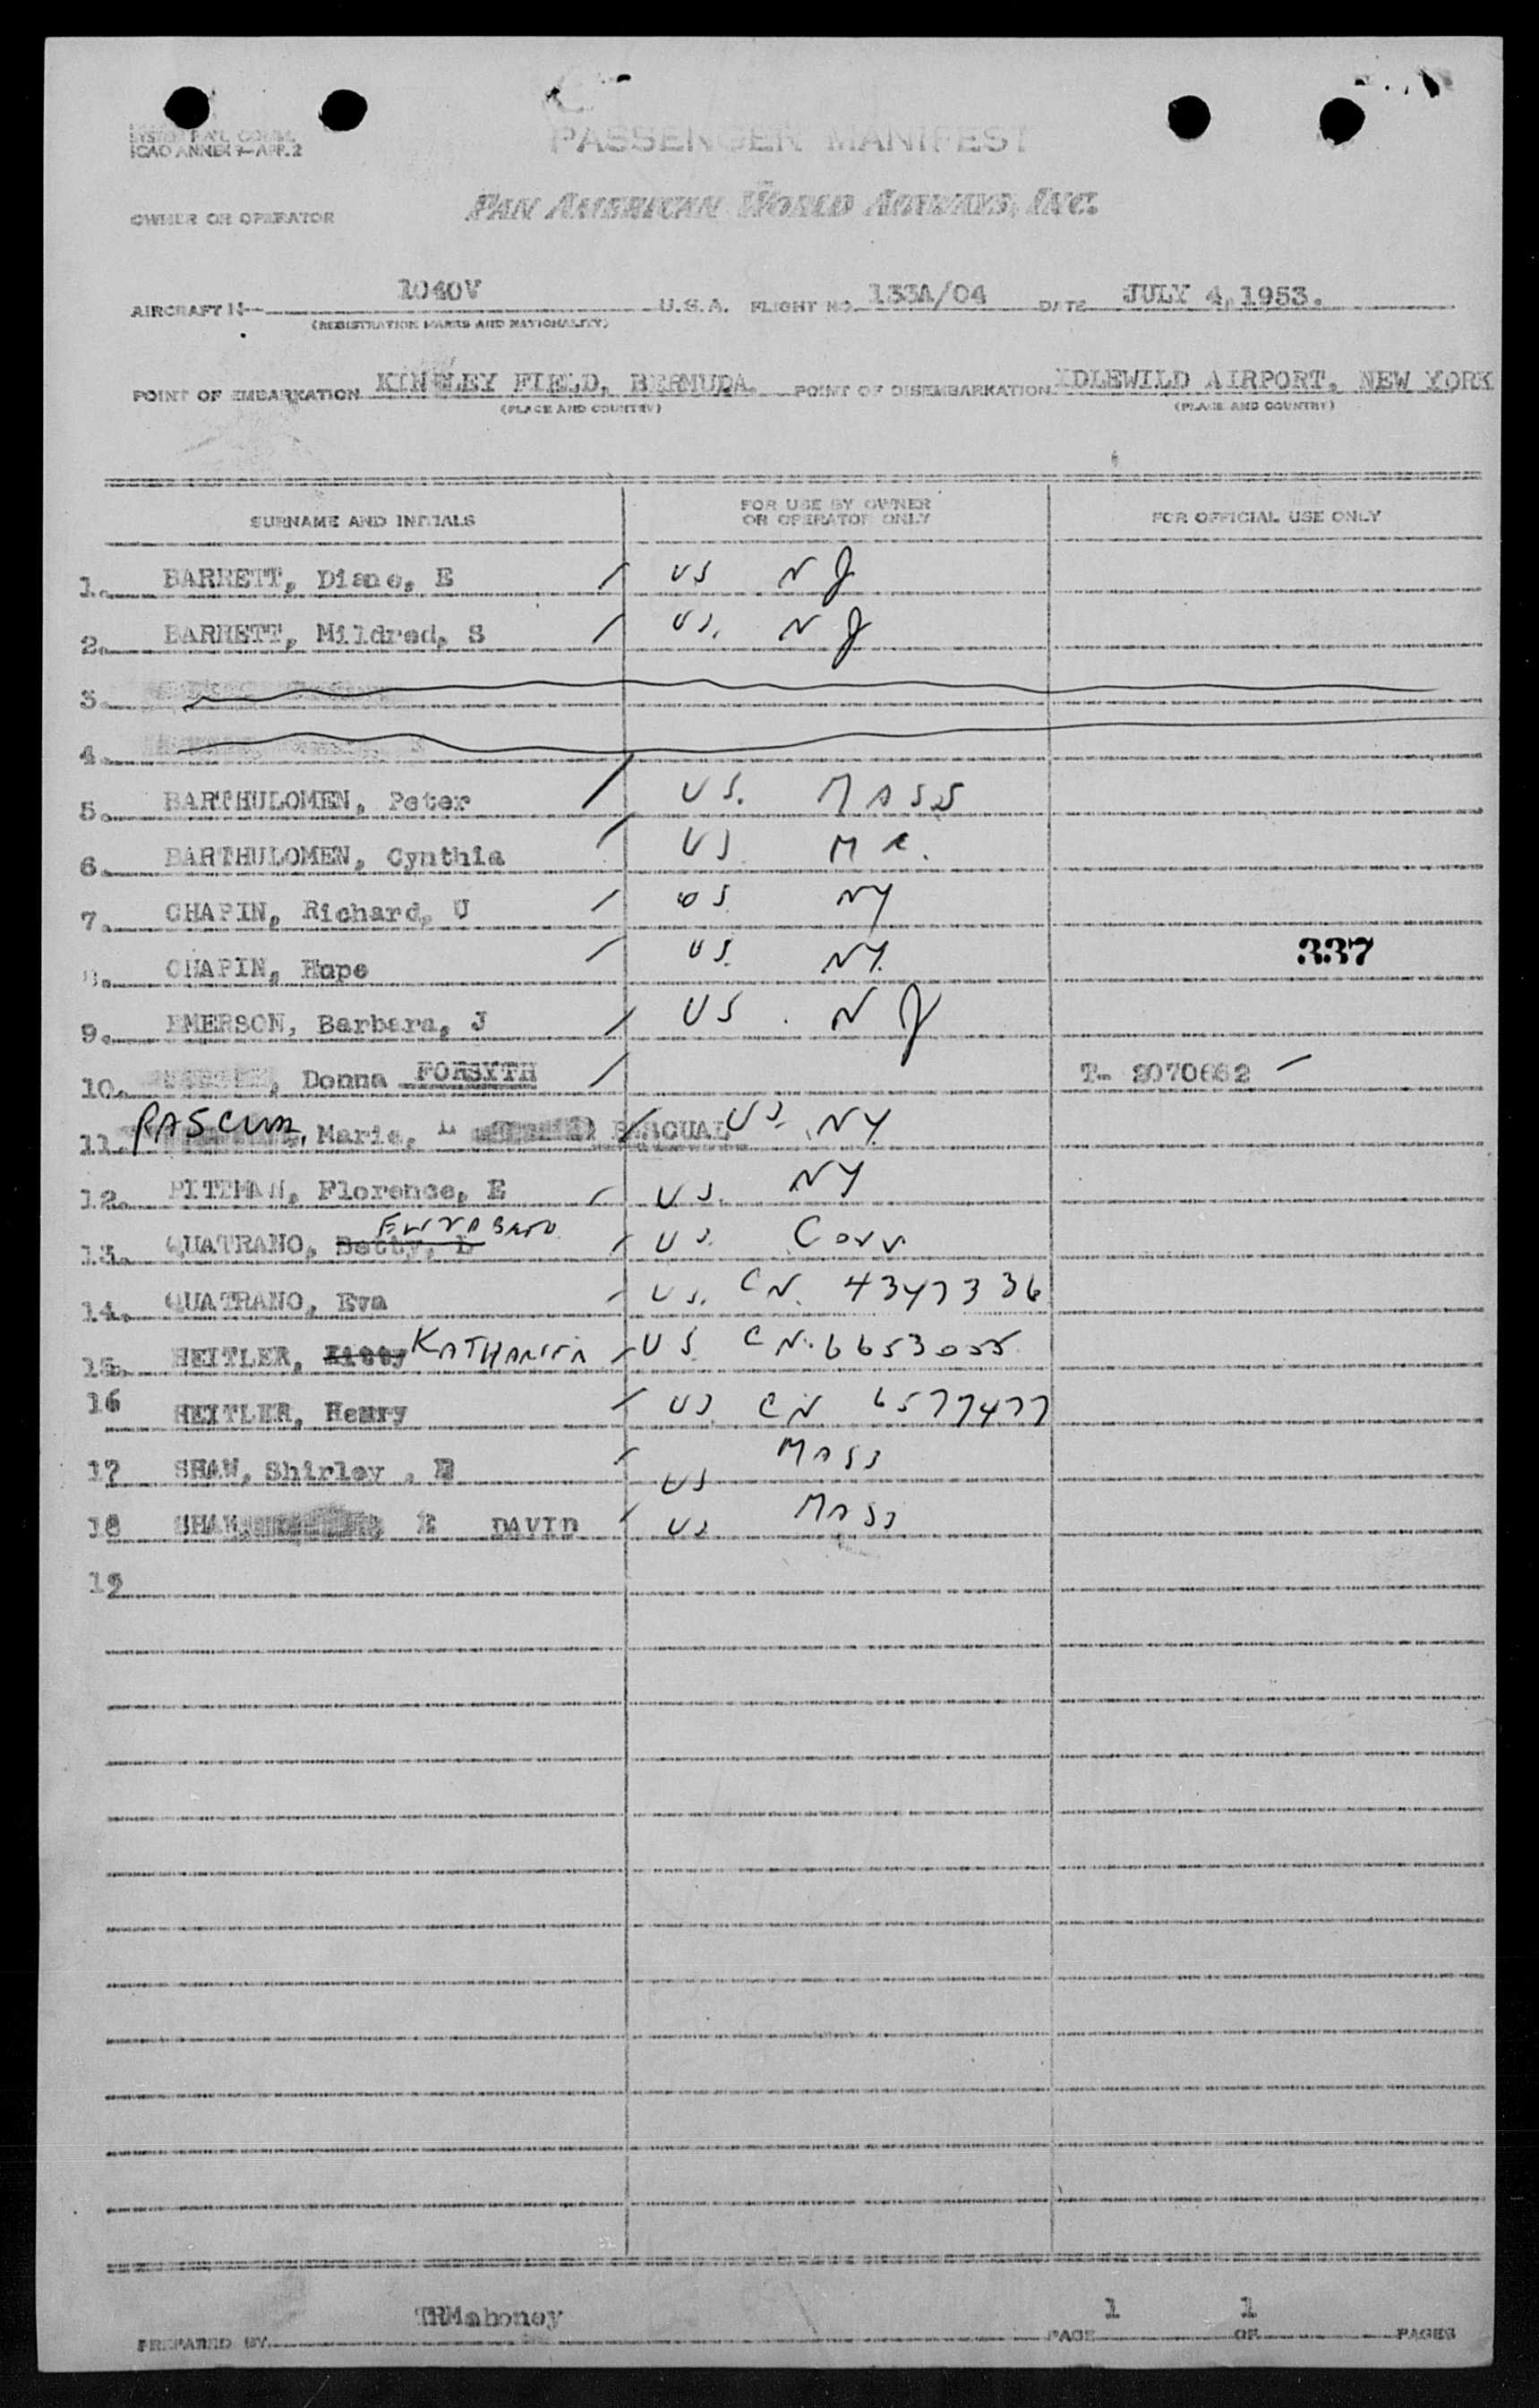 ICAO ANNEX 9—APP. 2
PASSENGER MANIFEST
OWNER OR OPERATOR PAN AMERICAN WORLD AIRWAYS, INC.
AIRCRAFT N- 1040V U.S.A. FLIGHT NO. 133A/04 DATE JULY 4, 1953.
(REGISTRATION MARKS AND NATIONALITY)
POINT OF EMBARKATION KINDLEY FIELD, BERMUDA. POINT OF DISEMBARKATION IDLEWILD AIRPORT, NEW YORK
(PLACE AND COUNTRY) (PLACE AND COUNTRY)
SURNAME AND INITIALS FOR USE BY OWNER OR OPERATOR ONLY FOR OFFICIAL USE ONLY
1. BARRETT, Diane, E / US NJ
2. BARRETT, Mildred, S / US. NJ
3.
4.
5. BARTHULOMEN, Peter / US. MASS
6. BARTHULOMEN, Cynthia / US
7. CHAPIN, Richard, U / US NY
8. CHAPIN, Hope / US. NY. 337
9. EMERSON, Barbara, J / US. NJ
10. , Donna FORSYTH / T- 2070662
11. PASCUAL, Marie, L PASCUAL / US. NY.
12. PITTMAN, Florence, E / US. NY
13. QUATRANO, Betty, L / US. Conn
14. QUATRANO, Eva / US. CN. 4347336
15. HEITLER, Kitty / US CN. 6653055
16 HEITLER, Henry / US CN 6577477
17 SHAW, Shirley, E / US MASS
18 SHAW, E DAVID / US MASS
19
TRMahoney 1 1
PREPARED BY PAGE OF PAGES